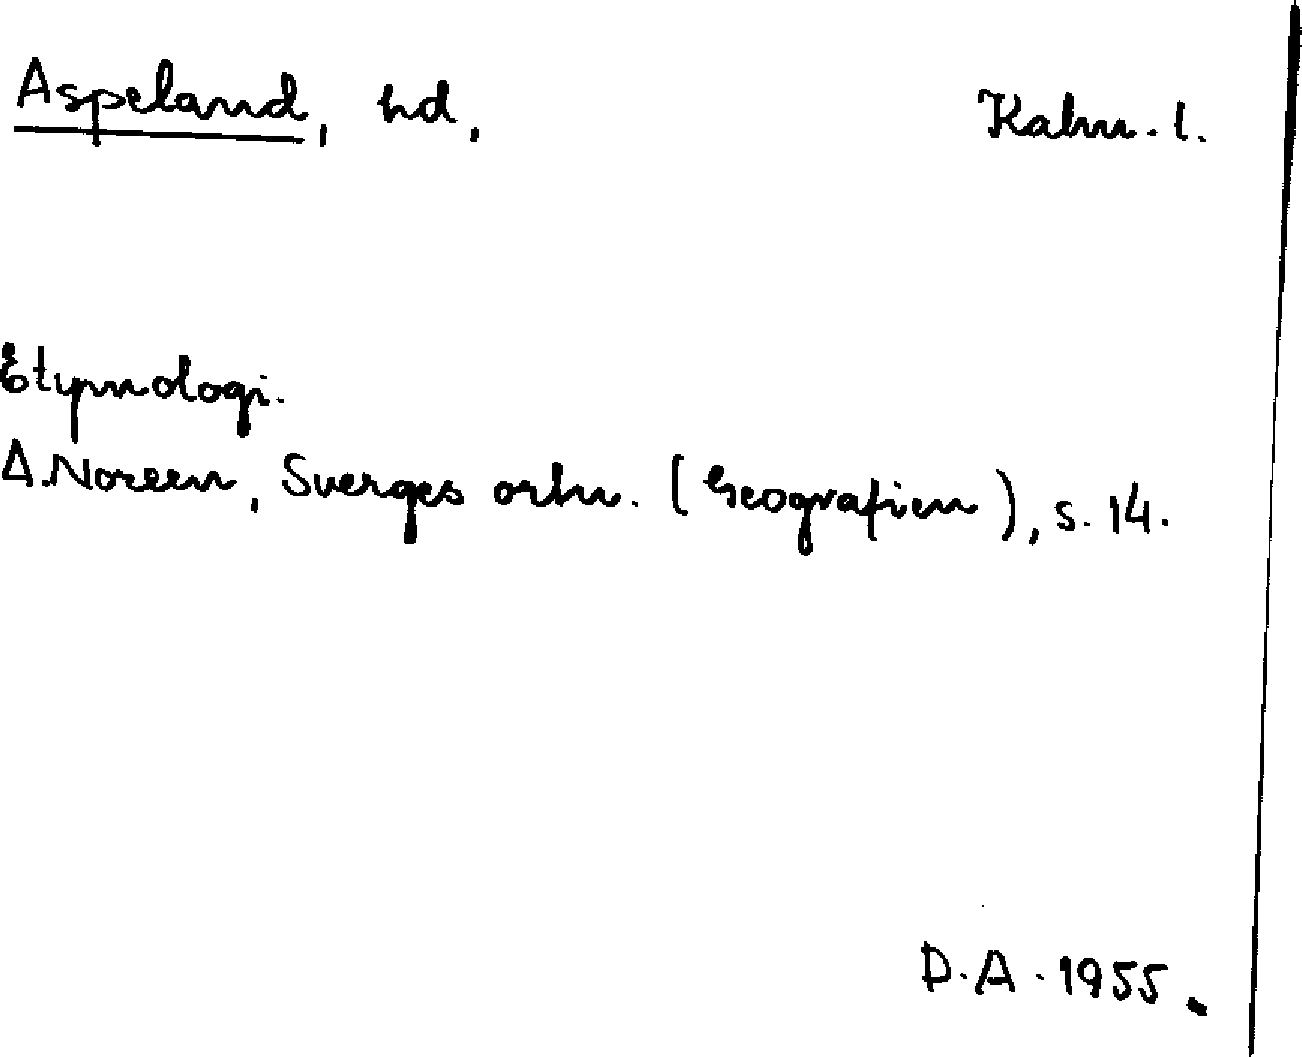 Aspeland, hd, Kalm. l.
Etymologi.
A. Noreen, Sverges ortn. (Geografien), s. 14.
D. A. 1955.